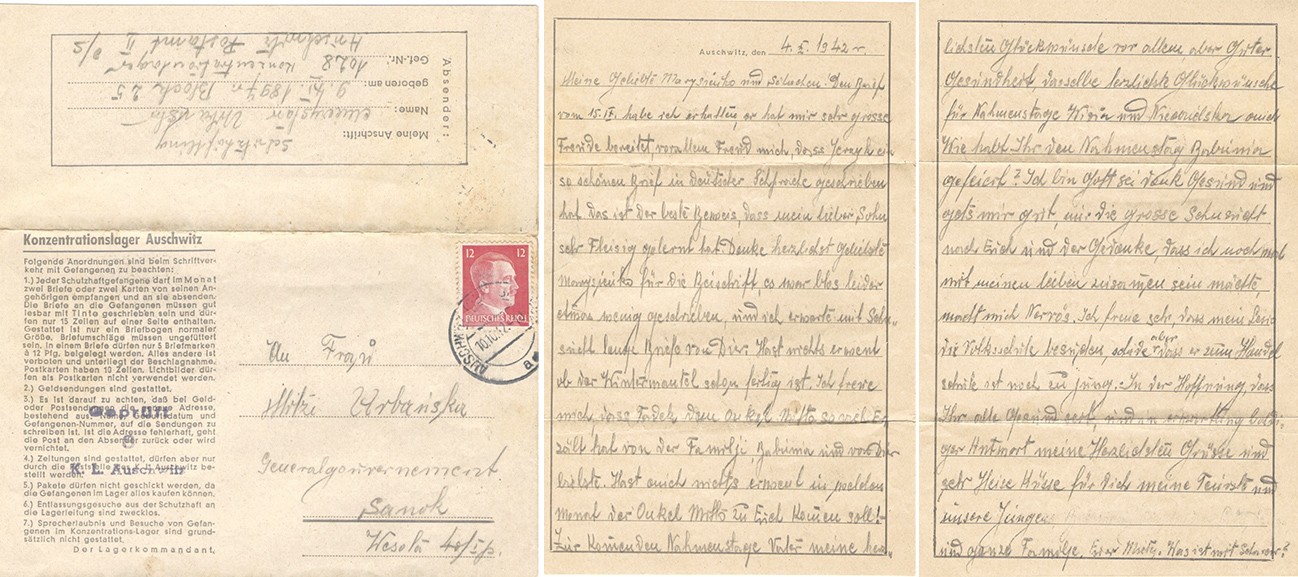 Absender:
Meine Anschrift:
Schutzhäftling
Name: Mieczysław Urbański
geboren am: 9. XI. 1897 r. Block 25
Gef.-Nr. 1028 Konzentrationslager
Auschwitz Postamt II O/S
Konzentrationslager Auschwitz
Folgende Anordnungen sind beim Schriftver-
kehr mit Gefangenen zu beachten:
1.) Jeder Schutzhaftgefangene darf im Monat
zwei Briefe oder zwei Karten von seinen An-
gehörigen empfangen und an sie absenden.
Die Briefe an die Gefangenen müssen gut
lesbar mit Tinte geschrieben sein und dür-
fen nur 15 Zeilen auf einer Seite enthalten.
Gestattet ist nur ein Briefbogen normaler
Größe. Briefumschläge müssen ungefüttert
sein. In einem Briefe dürfen nur 5 Briefmarken
à 12 Pfg. beigelegt werden. Alles andere ist
verboten und unterliegt der Beschlagnahme.
Postkarten haben 10 Zeilen. Lichtbilder dür-
fen als Postkarten nicht verwendet werden.
2.) Geldsendungen sind gestattet.
3.) Es ist darauf zu achten, daß bei Geld-
oder Postsendungen die genaue Adresse,
bestehend aus Name, Geburtsdatum und
Gefangenen-Nummer, auf die Sendungen zu
schreiben ist. Ist die Adresse fehlerhaft, geht
die Post an den Absender zurück oder wird
vernichtet.
4.) Zeitungen sind gestattet, dürfen aber nur
durch die Poststelle des K. L. Auschwitz be-
stellt werden.
5.) Pakete dürfen nicht geschickt werden, da
die Gefangenen im Lager alles kaufen können.
6.) Entlassungsgesuche aus der Schutzhaft an
die Lagerleitung sind zwecklos.
7.) Sprecherlaubnis und Besuche von Gefan-
genen im Konzentrations-Lager sind grund-
sätzlich nicht gestattet.
Der Lagerkommandant.
Geprüft
K. L. Auschwitz
12 12
DEUTSCHES REICH
AUSCHWITZ
a
An Frau
Mitzi Urbańska
Generalgouvernement
Sanok
Wesoła
Auschwitz, den 4. X. 1942 r.
Meine Geliebte Marysieńko und Den Brief
vom 15/IX. habe ich erhalten, er hat mir sehr grosse
Freude bereitet, vorallem Freud mich, dass Jerzyk ein
so schönen Brief in Deutscher Schprache geschrieben
hat. Das ist der beste Beweis, dass mein lieber Sohn
sehr Fleisig gelernt hat. Danke hezlichst Geliebte
Marysieńko für die Beischrift, es war blos leider
etwas wenig geschrieben, und ich erwarte mit Sehn-
sucht lange Briefe von Dier. Hast nichts erwent
ob der Wintermantel schon fertig ist. Ich freue
mich dass Tadek dem Onkel so viel Er-
zält hat von der Familji Babunia und von Dier
Liebste. Hast auch nichts erwent in welchen
Monat der Onkel zu Euch komen soll!-
Zur komenden Nahmenstage Vater meine herz-
lichsten Glückwünsche vor allem aber Guter
Gesundheit, dasselbe herzlichste Glückwünsche
für Nahmenstage und auch
Wie habt Ihr den Nahmenstag Babunia
gefeiert? Ich bin Gott sei dank Gesund und
gets mir gut, nur die grosse Sehnsucht
nach Euch und der Gedanke, dass ich noch mal
mit meinen lieben zusamen sein möchte,
macht mich Nerwös. Ich freue sehr dass mein
die Volksschule besuchen, schade aber dass er zum Handel
schule ist noch zu jung. In der Hoffnung, dass
Ihr alle Gesund seit, und in erwartung
ger Antwort meine Herzlichsten Grüsse und
sehr Heise Küsse für Dich meine Teurste und
unsere Jungen
und ganze Familje. Euer Was ist mit